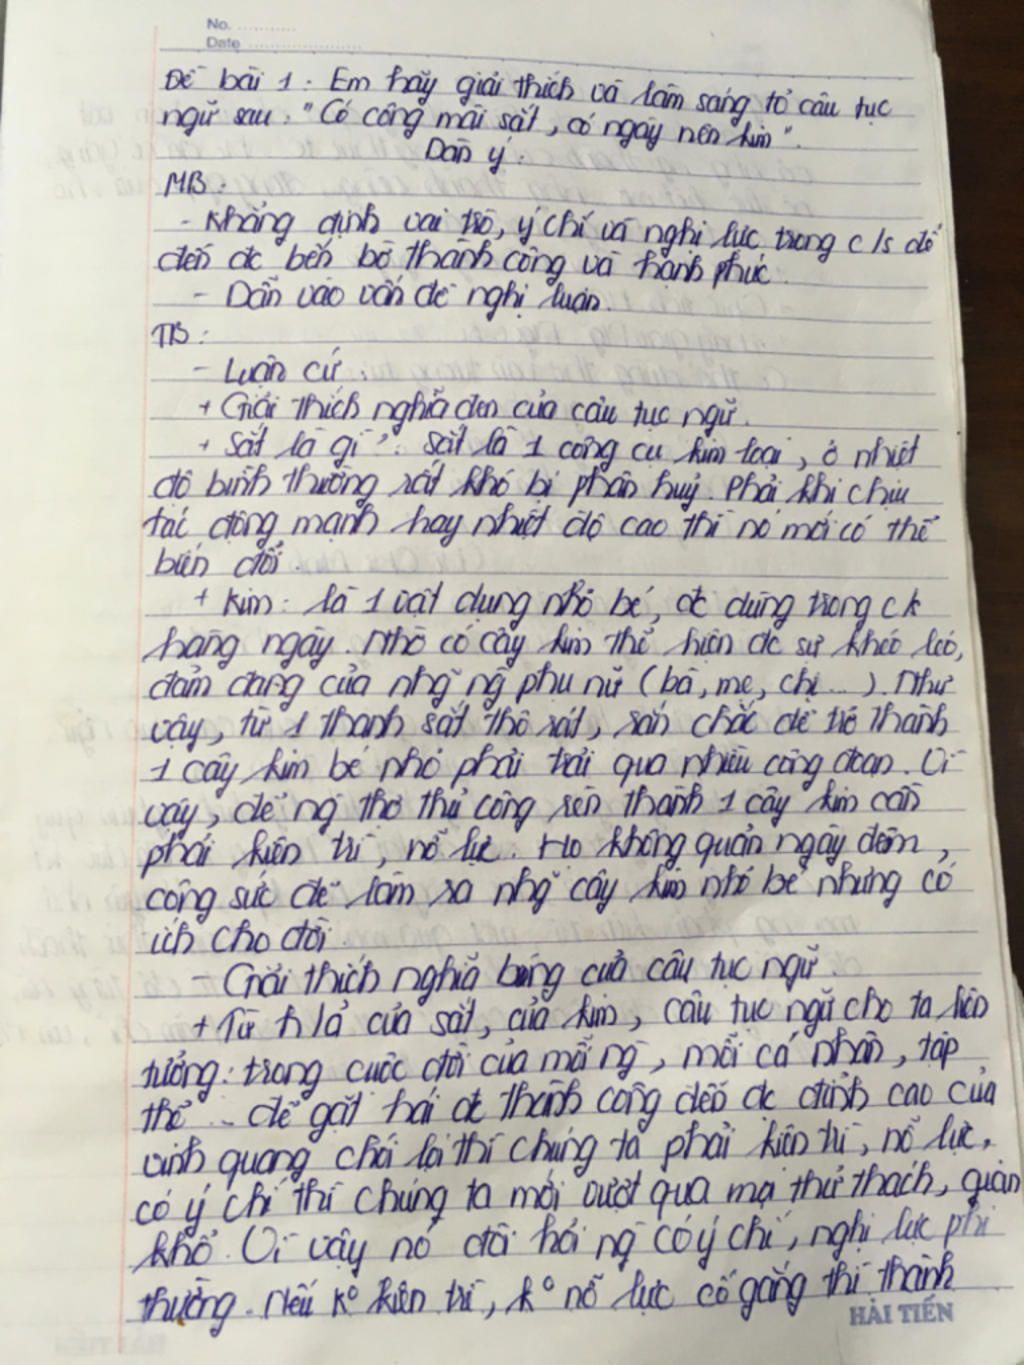 No. ...........
Date .....................
Đề bài 1: Em hãy giải thích và làm sáng tỏ câu tục
ngữ sau: "Có công mài sắt, có ngày nên kim".
Dàn ý:
MB:
- Khẳng định vai trò, ý chí và nghị lực trong c/s để
đến đc bến bờ thành công và hạnh phúc.
- Dẫn vào vấn đề nghị luận.
TB:
- Luận cứ:
+ Giải thích nghĩa đen của câu tục ngữ.
+ Sắt là gì?: Sắt là 1 công cụ kim loại, ở nhiệt
độ bình thường rất khó bị phân huỷ. Phải khi chịu
tác động mạnh hay nhiệt độ cao thì nó mới có thể
biến đổi.
+ Kim: là 1 vật dụng nhỏ bé, đc dùng trong
hàng ngày. Nhờ có cây kim thể hiện đc sự khéo léo,
đảm đang của nhg ng phụ nữ (bà, mẹ, chị...). Như
vậy, từ 1 thanh sắt thô rát, rắn chắc để trở thành
1 cây kim bé nhỏ phải trải qua nhiều công đoạn. Vì
vậy, để ng thợ thủ công rèn thành 1 cây kim cần
phải kiên trì, nỗ lực. Họ không quản ngày đêm,
công sức để làm ra nhg cây kim nhỏ bé nhưng có
ích cho đời.
- Giải thích nghĩa bóng của câu tục ngữ.
+ Từ h/ả của sắt, của kim, câu tục ngữ cho ta liên
tưởng: trong cuộc đời của mỗi ng, mỗi cá nhân, tập
thể ... để gặt hái đc thành công đến đc đỉnh cao của
vinh quang chói lọi thì chúng ta phải kiên trì, nỗ lực,
có ý chí thì chúng ta mới vượt qua mọi thử thách, gian
khổ. Vì vậy nó đòi hỏi ng có ý chí, nghị lực phi
thường. Nếu k° kiên trì, k° nỗ lực cố gắng thì thành
HẢI TIẾN